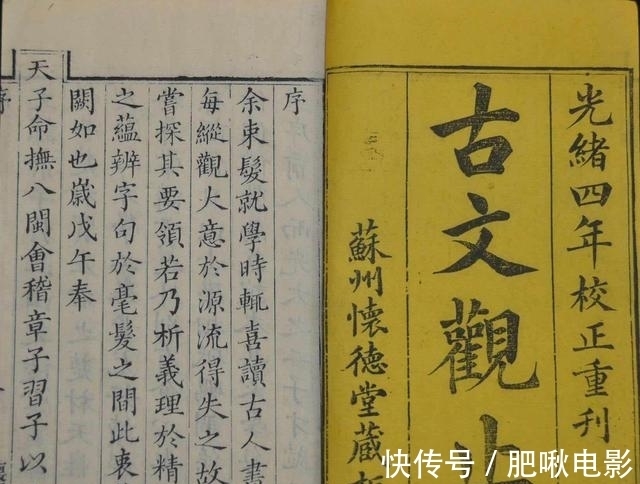 光緒四年校正重刊
古文觀止
蘇州懷德堂藏
序
余束髮就學時輒喜讀古人書
每縱觀大意於源流得失之故
嘗探其要領若乃析義理於精
之蘊辨字句於毫髮之間此衷
闕如也歲戊午奉
天子命撫八閩會稽章子習子以
序
快传号/肥啾电影